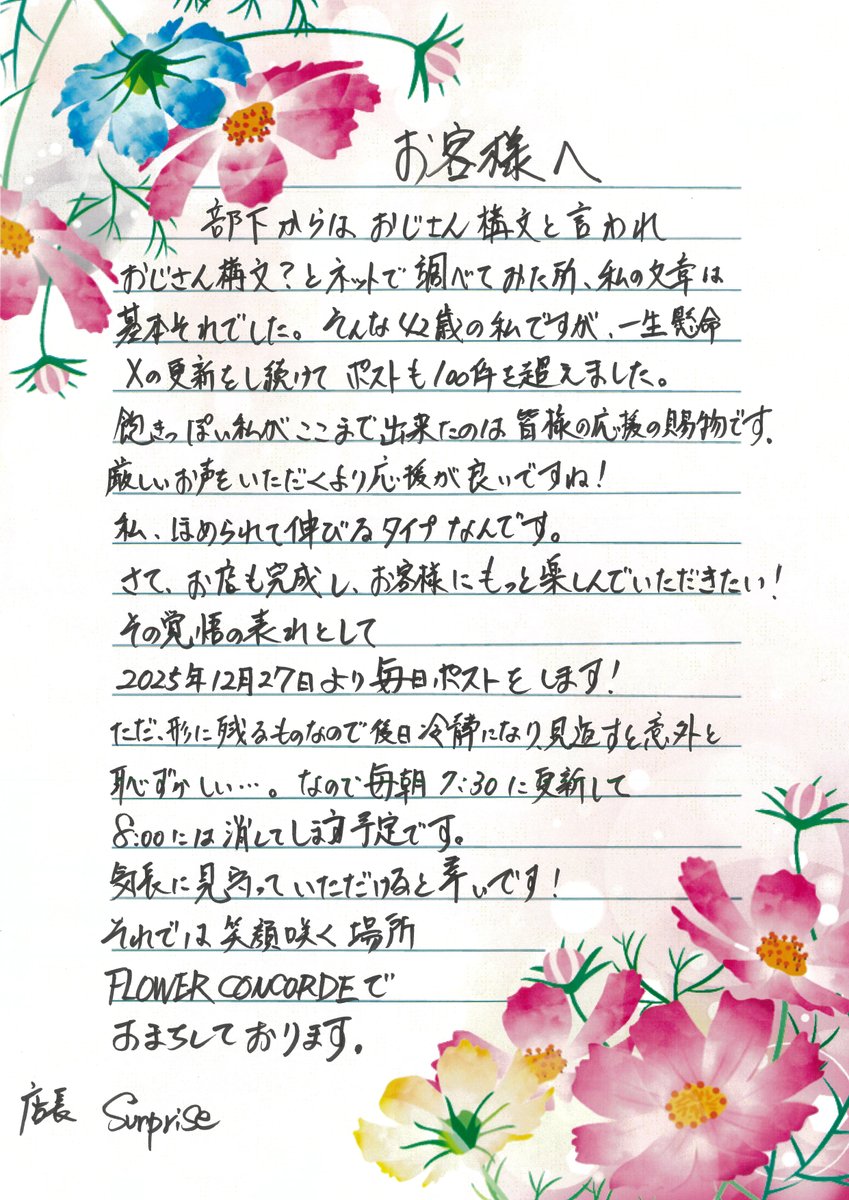 お客様へ
部下からはおじさん構文と言われ
おじさん構文?とネットで調べてみた所、私の文章は
基本それでした。そんな42歳の私ですが、一生懸命
Xの更新をし続けてポストも100件を超えました。
飽きっぽい私がここまで出来たのは皆様の応援の賜物です。
厳しいお声をいただくより応援が良いですね!
私、ほめられて伸びるタイプなんです。
さて、お店も完成し、お客様にもっと楽しんでいただきたい!
その覚悟の表れとして
2025年12月27日より毎日ポストをします!
ただ、形に残るものなので後日冷静になり、見返すと意外と
恥ずかしい…。なので毎朝7:30に更新して
8:00には消してします予定です。
気長に見守っていただけると幸いです!
それでは笑顔咲く場所
FLOWER CONCORDEで
おまちしております。
店長 Surprise